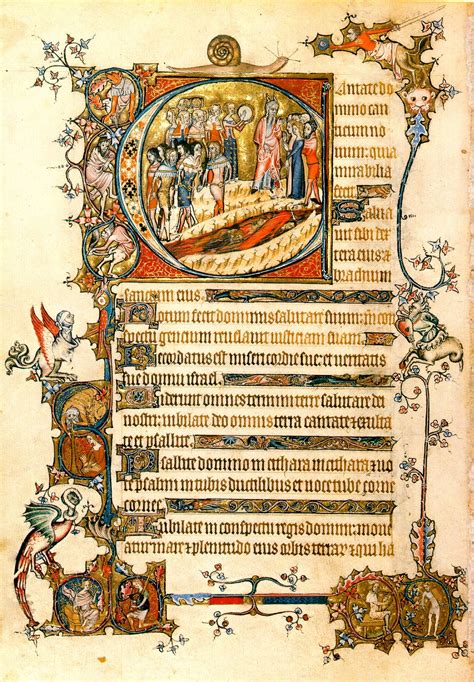 Cantate do
mino can
ticum no
uum: quia
mirabilia
fecit
Salua
uit sibi dex
tera eius &
brachium
sanctum eius.
Notum fecit dominus salutare suum: in con
spectu gencium reuelauit iusticiam suam.
Recordatus est misericordie sue: et ueritatis
sue domui israel.
Uiderunt omnes termini terre salutare dei
nostri: iubilate deo omnis terra cantate & exulta
te et psallite.
Psallite domino in cithara in cithara & uo
ce psalmi: in tubis ductilibus et uoce tube
cornee.
Iubilate in conspectu regis domini: moue
atur mare & plenitudo eius orbis terrarum & qui ha